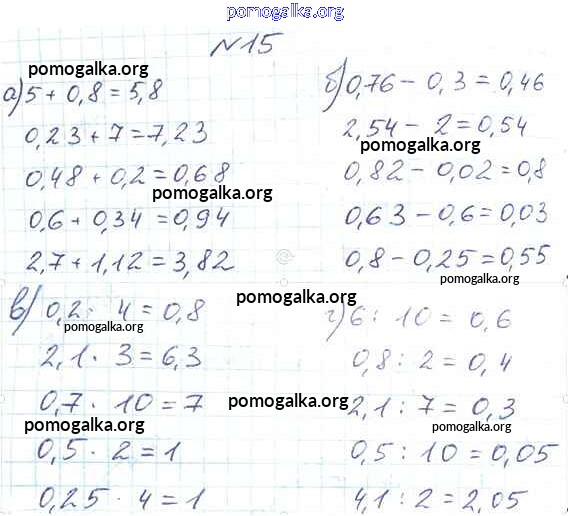 pomogalka.org
№15
pomogalka.org
а) 5 + 0,8 = 5,8
0,23 + 7 = 7,23
0,48 + 0,2 = 0,68
pomogalka.org
0,6 + 0,34 = 0,94
2,7 + 1,12 = 3,82
б) 0,76 - 0,3 = 0,46
2,54 - 2 = 0,54
pomogalka.org
0,82 - 0,02 = 0,8
0,63 - 0,6 = 0,03
0,8 - 0,25 = 0,55
pomogalka.org
pomogalka.org
в) 0,2 · 4 = 0,8
pomogalka.org
2,1 · 3 = 6,3
0,7 · 10 = 7
pomogalka.org
0,5 · 2 = 1
0,25 · 4 = 1
г) 6 : 10 = 0,6
0,8 : 2 = 0,4
pomogalka.org
2,1 : 7 = 0,3
pomogalka.org
0,5 : 10 = 0,05
4,1 : 2 = 2,05